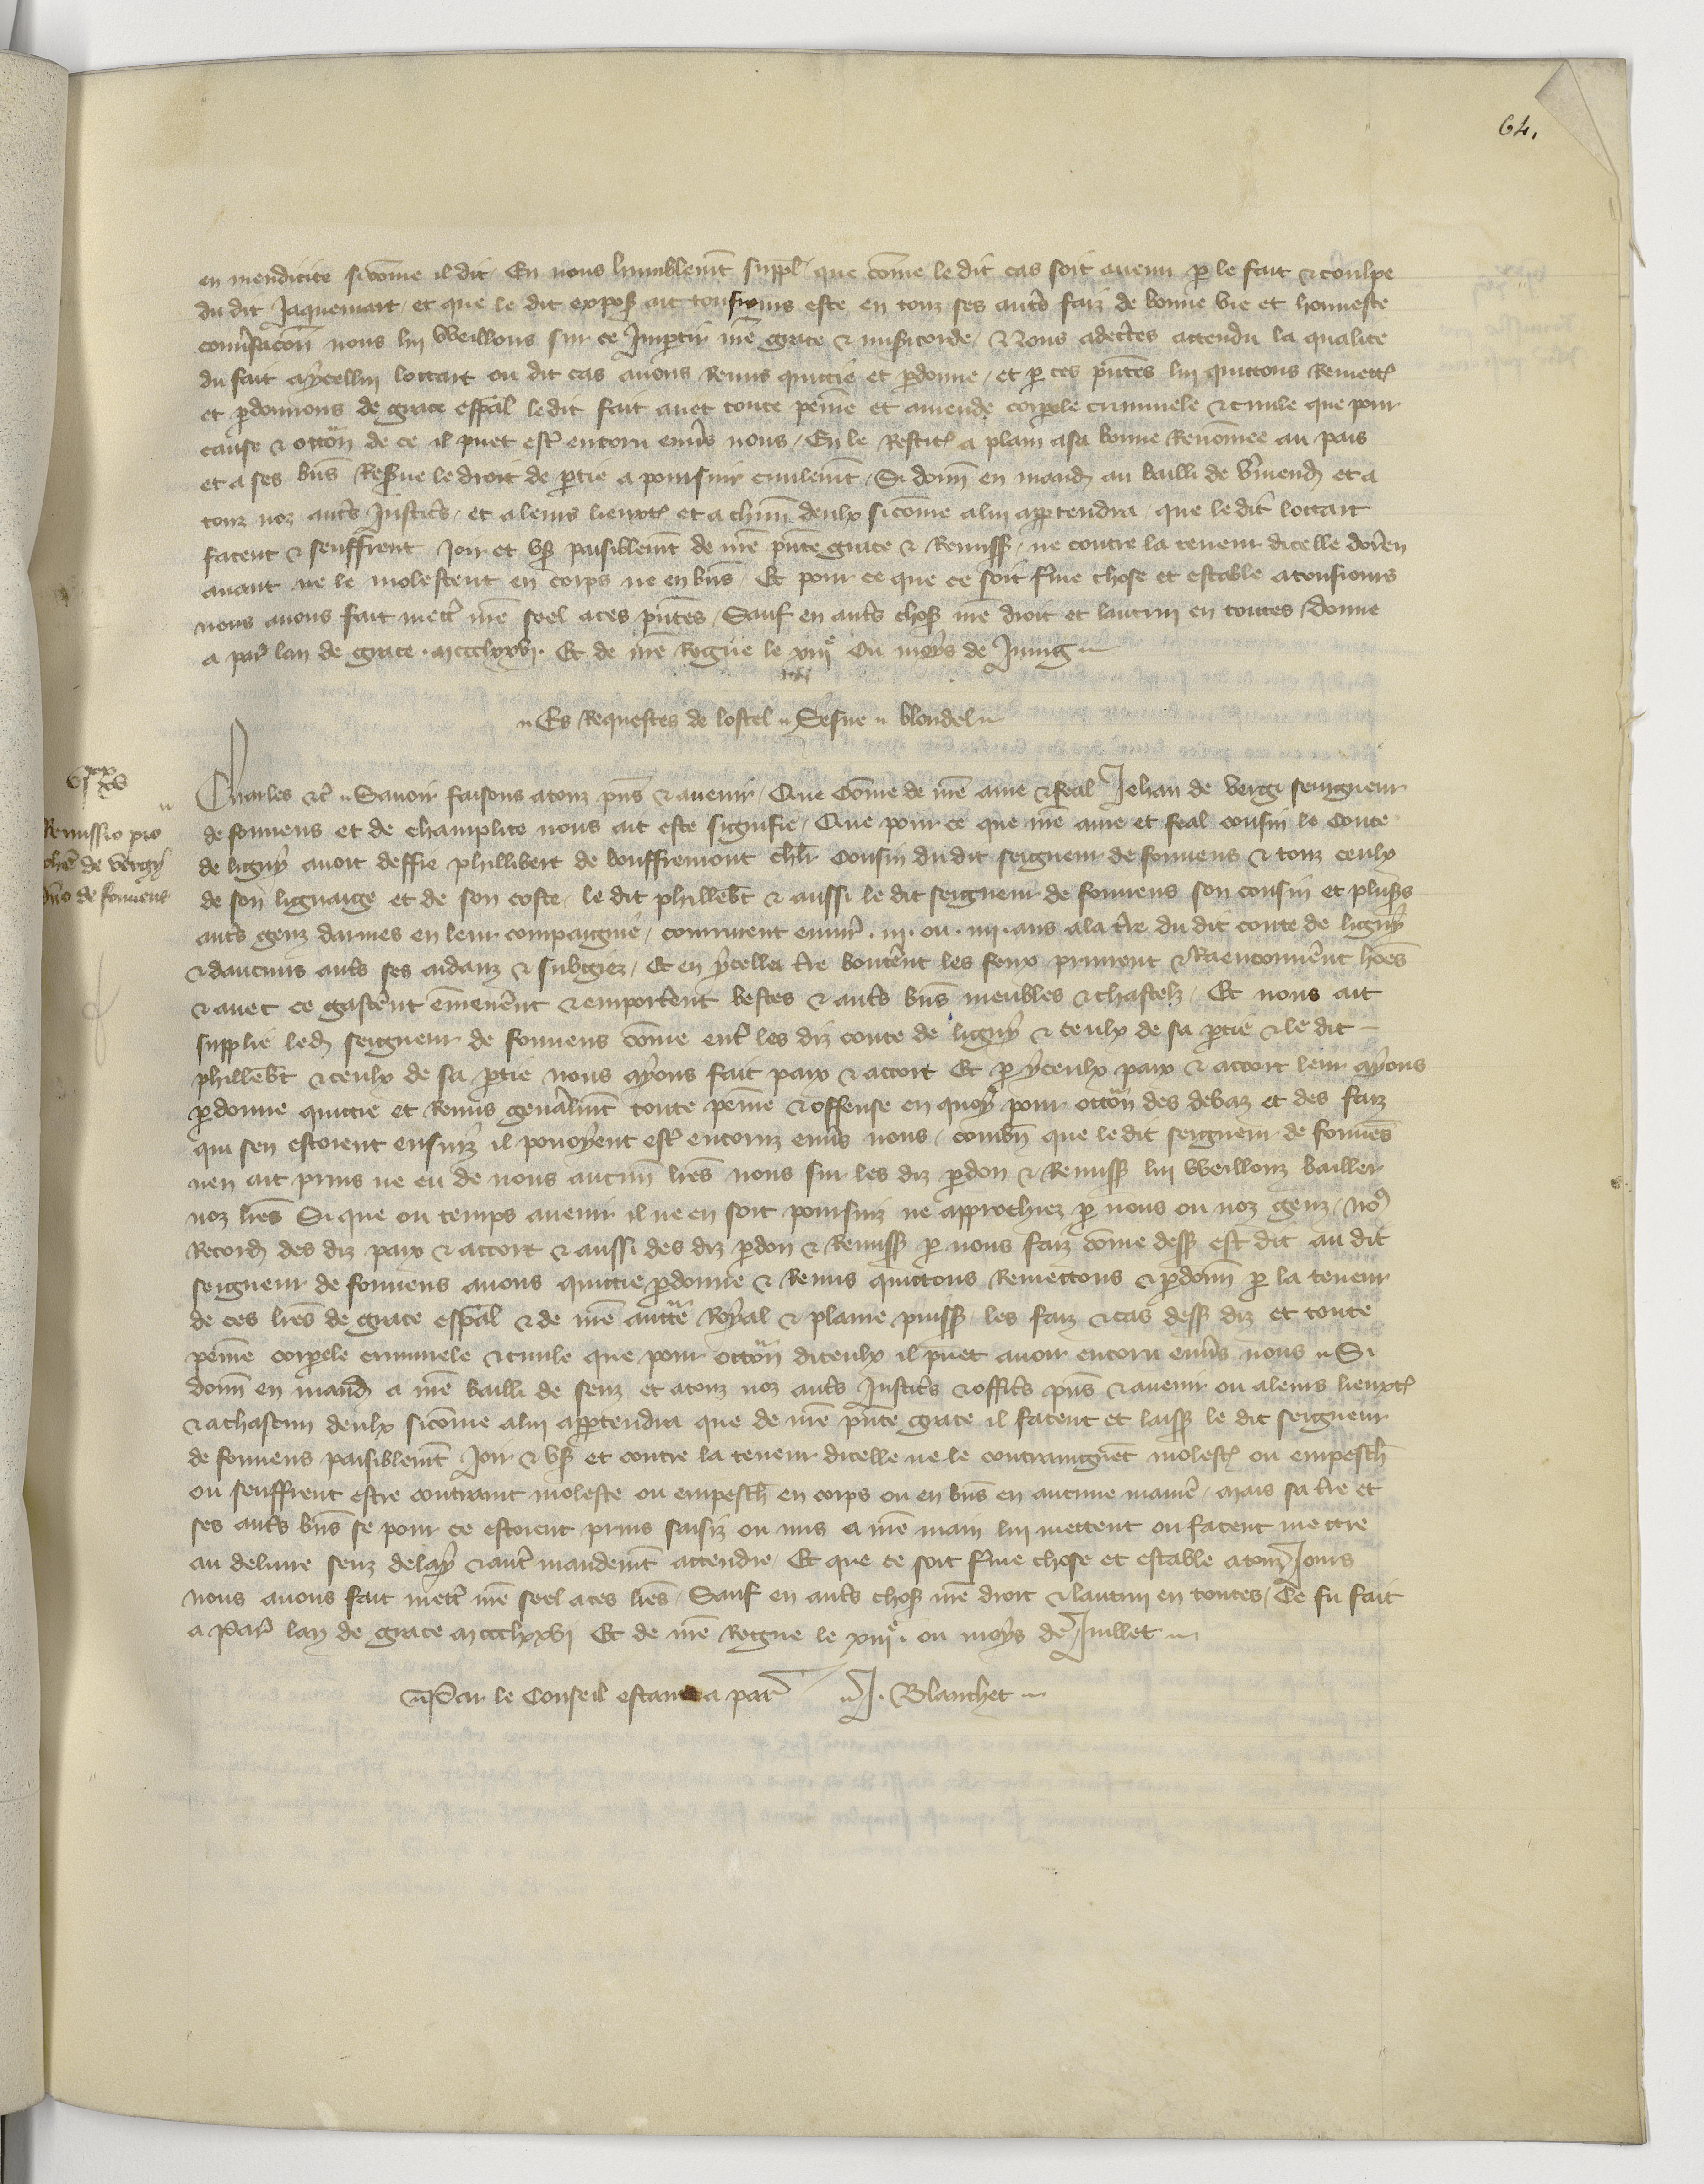 64.
en mendicite sicome il dit / En nous humblemt suppl que come le dit cas soit avenu p le fait & coulpe
du dit Jaquemart / et que le dit expoß ait tousiours este en touz ses autrs faiz de bonne vie et honneste
convsacon nous lui Weillons sur ce Impartir nre grace & misicorde / & Nous adectes attendu la qualite
du fait a ycellui lottart ou dit cas avons Remis quittie et pdonne / et p ces pntes lui quittons Remett
et pdonnons de grace espal le dit fait avec toute peine et amende corpele criminele & civile que pour
cause & occon de ce il puet estr encoru envs nous / En le Restit a plain a sa bonne Renomee au pais
et a ses bns Resve le droit de ptie a poursuir civilemt / Si donn en mand au bailli de Vmend et a
touz noz autrs Justics / et a leurs lieuxt et a chun deulx sicome a lui apptendra / que le dit lottart
facent & seuffrent Joir et uß paisiblemt de nre pnte grace & Remiss / ne contre la teneur dicelle doren
avant ne le molestent en corps ne en bns / Et pour ce que ce soit fme chose et estable a tousiours
nous avons fait mettr nre seel a ces pntes / Sauf en autrs choß nre droit et lautrui en toutes / donne
a par lan de grace mccclxxvi Et de nre Regne le xiii e Ou moys de Juing
Es Requestes de lostel blondel
Remissio pro
Johe de Vergy
dno de fouvent
Charles & c Savoir faisons a touz pns & avenir / Que Come de nre ame & feal Jehan de Vergi seigneur
de fouvens et de champlite nous ait este signifie / Que pour ce que nre ame et feal cousin le Conte
de liguy avoit deffie phillibert de bouffremont chlr Cousin du dit seigneur de fouvens & touz ceulx
de son lignaige et de son coste / le dit phillebt & aussi le dit seigneur de fouvens son cousin et plusrs
autrs genz darmes en leur compaignie / coururent envir iii ou iiii ans a la tre du dit conte de liguy
& daucuns autrs ses aidanz & subgiez / Et en ycelle tre bouterent les feux prinrent & Raenconnerent hoes
& avec ce gasterent emmenerent & emporterent bestes & autrs bns meubles & chastelz / Et nous ait
supplie led seigneur de fouvens come entr les diz conte de liguy & ceulx de sa ptie & le dit
phillebt & ceulx de sa ptie nous ayons fait paix & accort Et p yceulx paix & accort leur ayons
pdonne quittie et Remis genalmt toute peine & offense en quoy pour occon des debaz et des faiz
qui sen estoient ensuiz il pouoyent estr encouruz envs nous / combn que le dit seigneur de fouves
nen ait prins ne eu de nous aucun lres nous sur les diz pdon & Remiss lui Weillonz bailler
noz lres Si que ou temps avenir il ne en soit poursuiz ne approchiez p nous ou noz genz / No9
Record des diz paix & accort & aussi des diz pdon & Remiss p nous faiz come dess est dit au dit
seigneur de fouvens avons quittie pdonne & Remis quittons Remettons & pdonn p la teneur
de ces lres de grace espal & de nre auctte Royal & plaine puiss les faiz & cas dess diz et toute
peine corpele criminele & civile que pour occon diceulx il puet avoir encoru envs nous Si
donn en mand a nre bailli de senz et a touz noz autrs Justics & offics pns & avenir ou a leurs lieuxt
& a chascun deulx sicome a lui apptendra que de nre pnte grace il facent et laiss le dit seigneur
de fouvens paisiblemt Joir & uß et contre la teneur dicelle ne le contraingnet molest ou empesch
ou seuffrent estre contraint moleste ou empesch en corps ou en bns en aucune manir / mais sa tre et
ses autrs bns se pour ce estoient prins saisiz ou mis a nre main lui mettent ou facent mettre
au delivre senz delay & autr mandemt attendre / Et que ce soit fme chose et estable a touz Jours
nous avons fait mettr nre seel a ces lres / Sauf en autrs choß nre droit & lautrui en toutes / Ce fu fait
a Par lan de grace mccclxxvi Et de nre Regne le xiii e ou moys de Juillet
Par le Conseil estant a par J. Blanchet